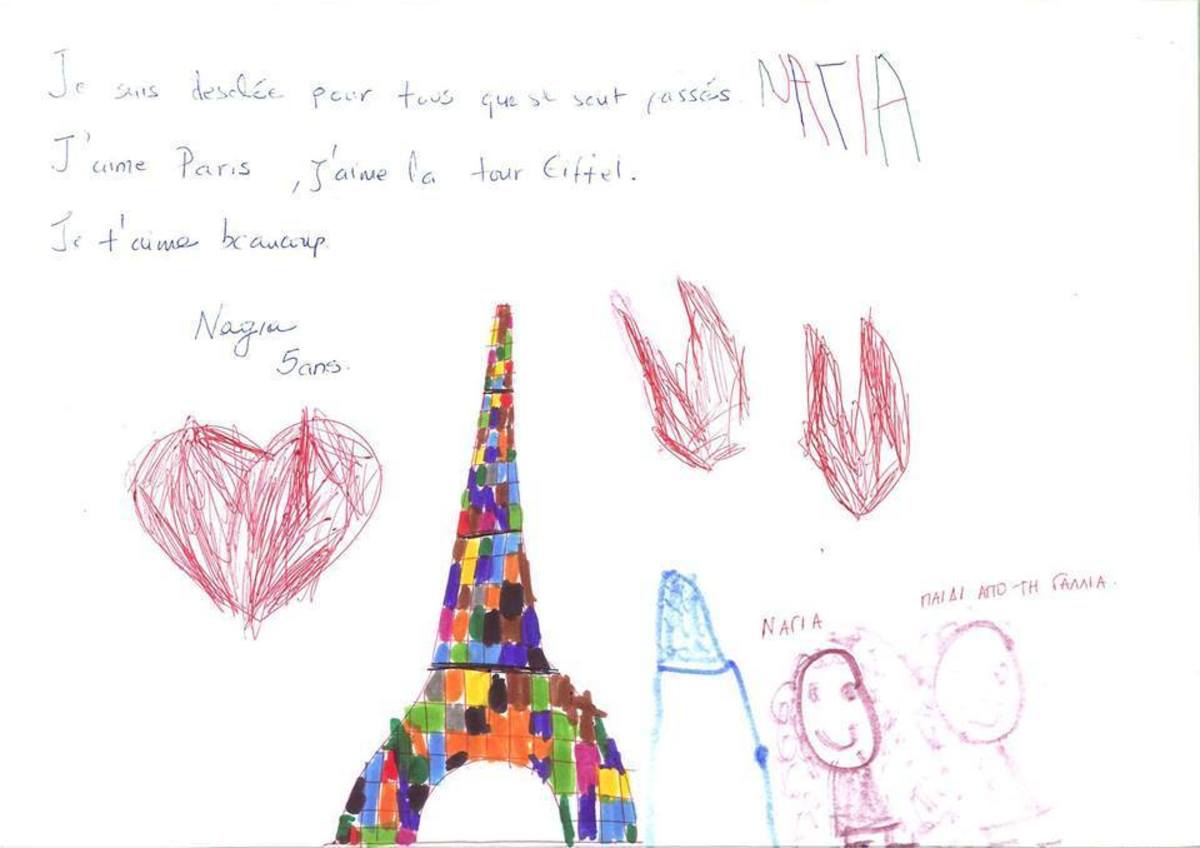 Je suis desolée pour tous que se sont passés. ΝΑΓΙΑ
J'aime Paris, j'aime la tour Eiffel.
Je t'aime beaucoup.
Nagia
5ans.
ΝΑΓΙΑ
ΠΑΙΔΙ ΑΠΟ ΤΗ ΓΑΛΛΙΑ.